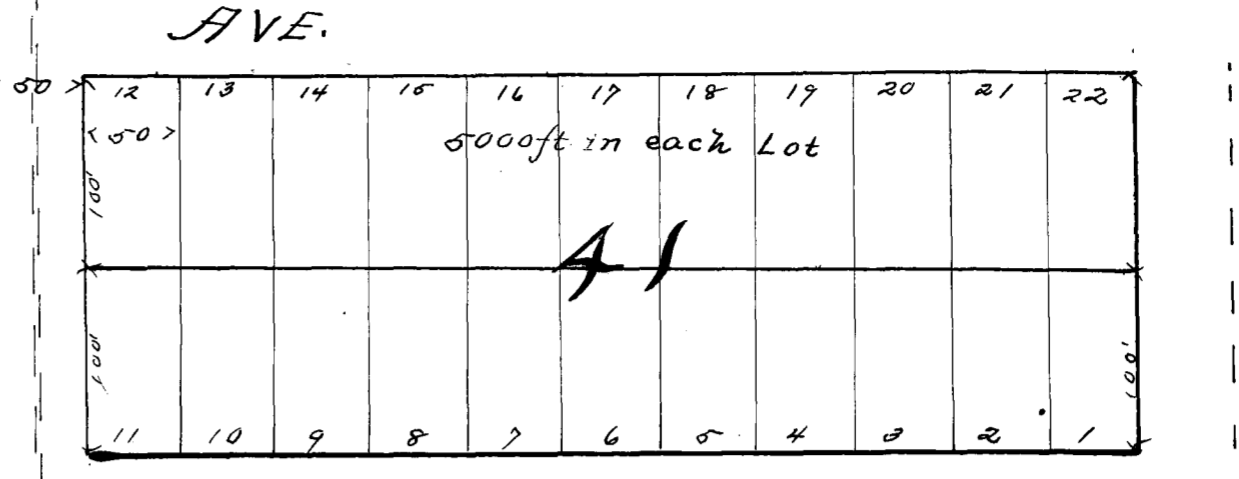 AVE.
50 > 12 13 14 15 16 17 18 19 20 21 22
< 50 > 5000ft in each Lot
100'
41
100' 100'
11 10 9 8 7 6 5 4 3 2 1